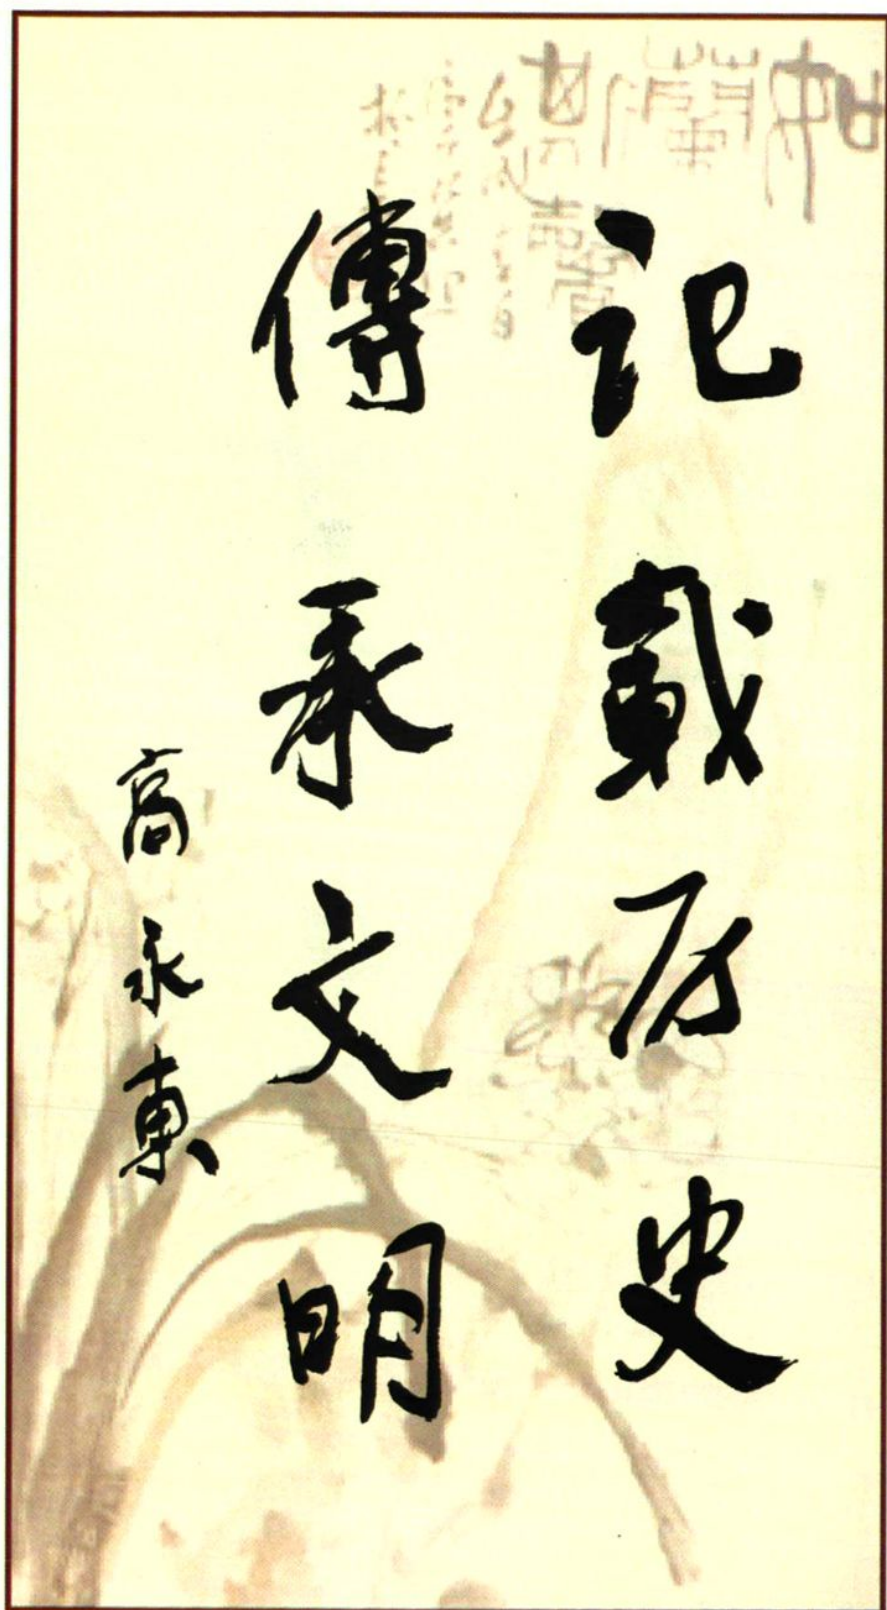 記載历史
傳承文明
高永東